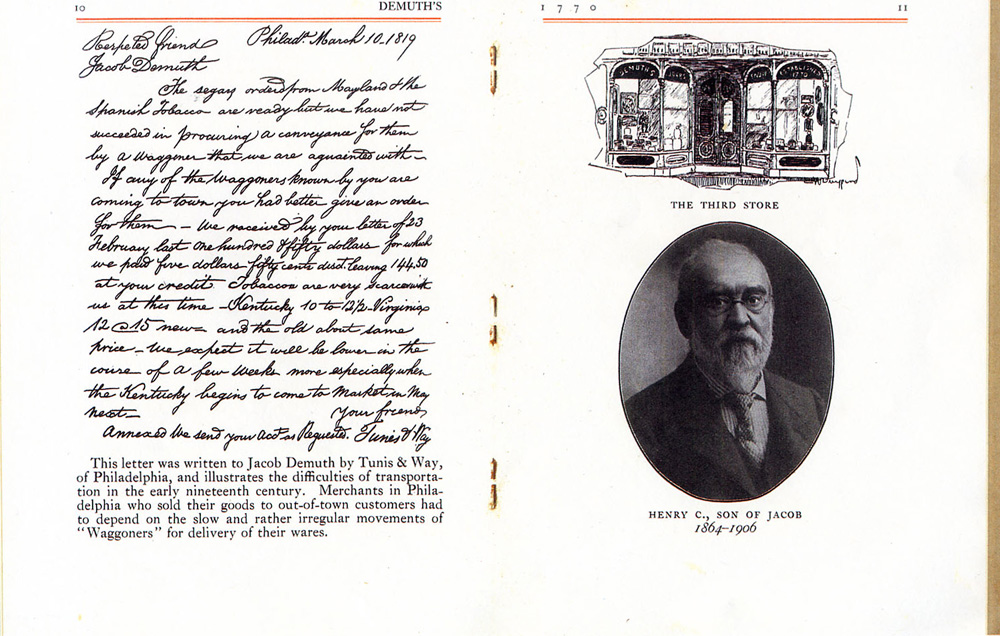 10 DEMUTH'S
Respeted friend Philada. March 10-1819
Jacob Demuth
The segars ordered from Mayland & the
Spanish Tobacco are ready but we have not
succeeded in procuring a conveyance for them
by a Waggoner that we are aquainted with-
If any of the Waggoners known by you are
coming to town you had better give an order
for them — We received by your letter of 23
February last one hundred & fifty dollars for which
we paid five dollars fifty cents disct. leaving 144.50
at your credit Tobaccos are very scarce with
us at this time - Kentucky 10 to 12½ - Virginia
12 @ 15 new - and the old about same
price - We expect it will be lower in the
course of a few weeks more especially when
the Kentucky begins to come to Market in May
next - Your friends
Annexed We send your Acct. as Requested. Tunis & Way
This letter was written to Jacob Demuth by Tunis & Way,
of Philadelphia, and illustrates the difficulties of transporta-
tion in the early nineteenth century. Merchants in Phila-
delphia who sold their goods to out-of-town customers had
to depend on the slow and rather irregular movements of
"Waggoners" for delivery of their wares.
1770 11
DEMUTH'S
ESTABLISHED
1770
THE THIRD STORE
HENRY C., SON OF JACOB
1864-1906